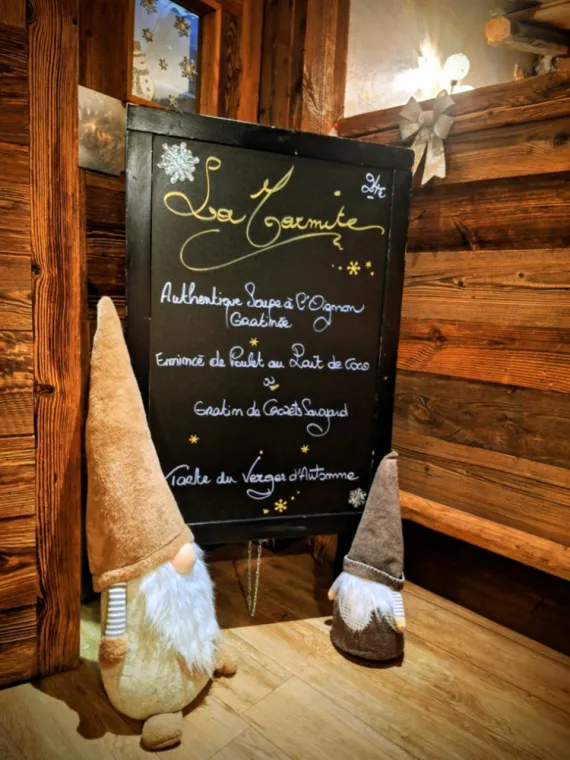 La Marmite
24€
Authentique Soupe à l'Oignon
Gratinée
Emincé de Poulet au Lait de Coco
ou
Gratin de Crozets Savoyard
Tarte du Verger d'Automne